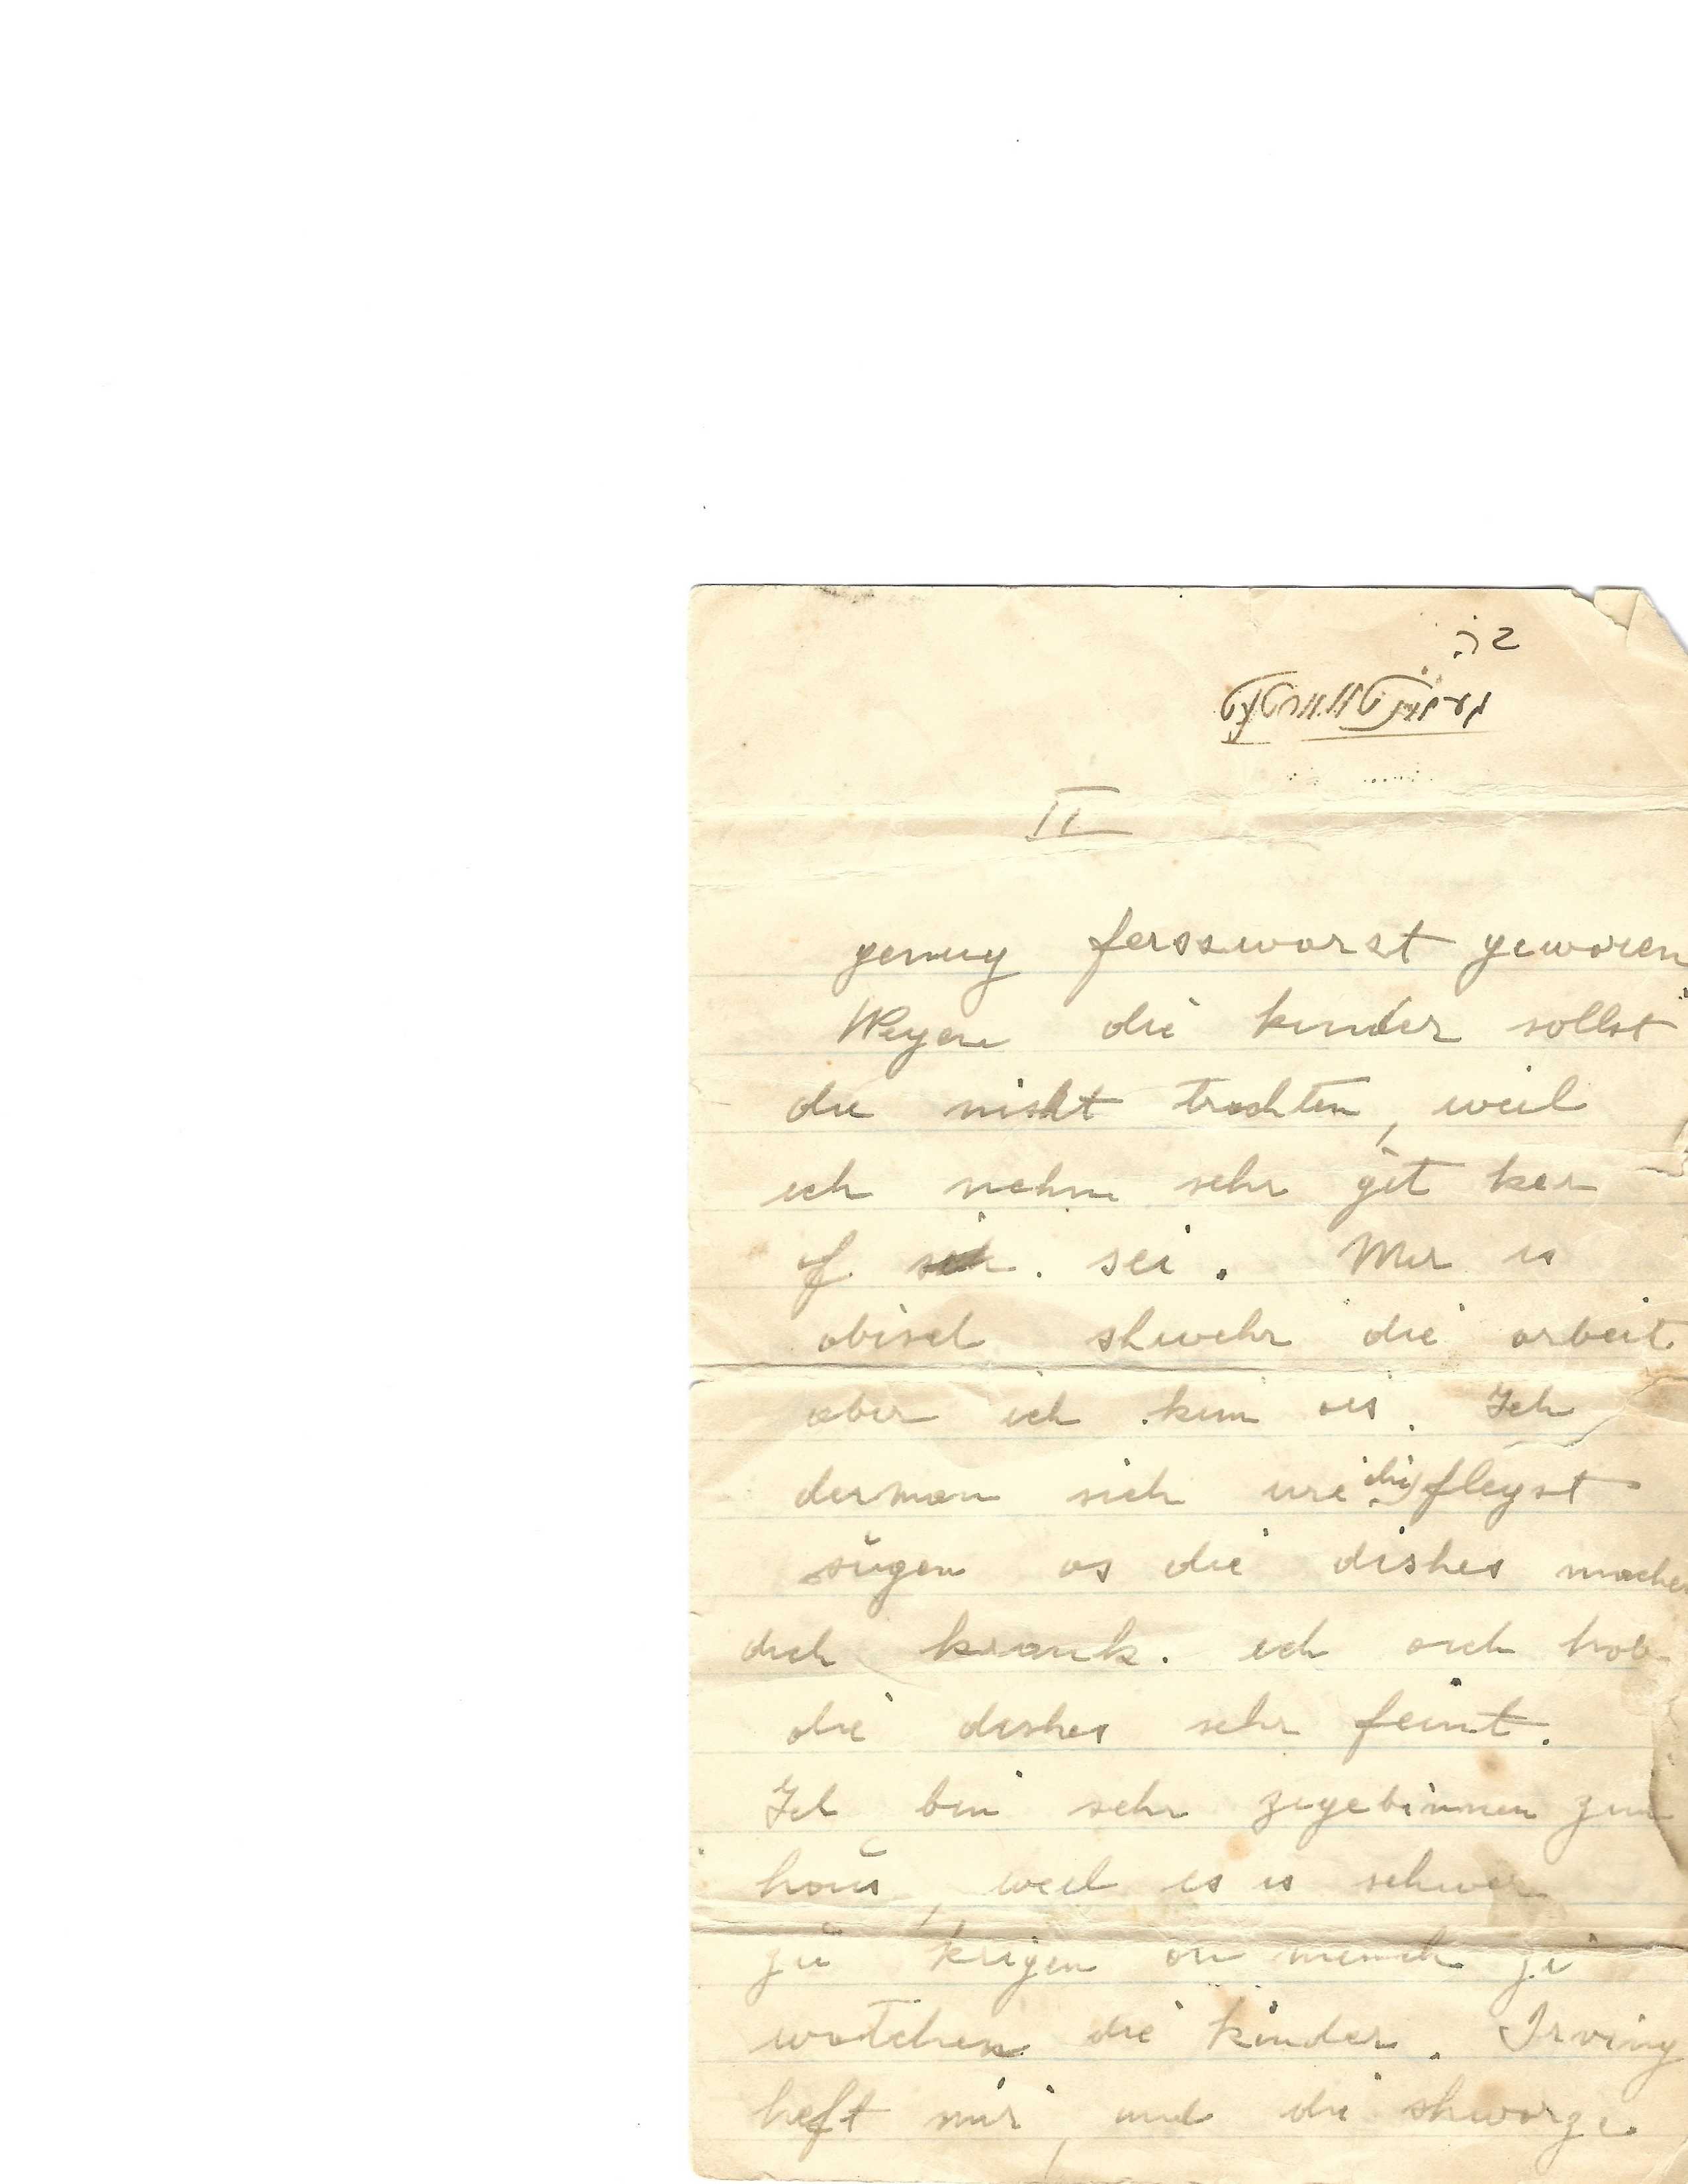 II
genug ferszworzt geworen
Wegen die kinder sollst
du nisht trachten, weil
ich nehm sehr gít ker
of sei. Mir is
abisel shwehr die arbeit
aber ich kim ois. Ich
derman sich wie di flegst
sŭgen as die dishes machen
dich krank. ich oich hob
die dishes sehr feint.
Ich bin sehr zugebinnen zum
hoŭs, weil es is schwer
zŭ krigen an mensh zi
watchen die kinder. Irving
helft mir, und die shworze